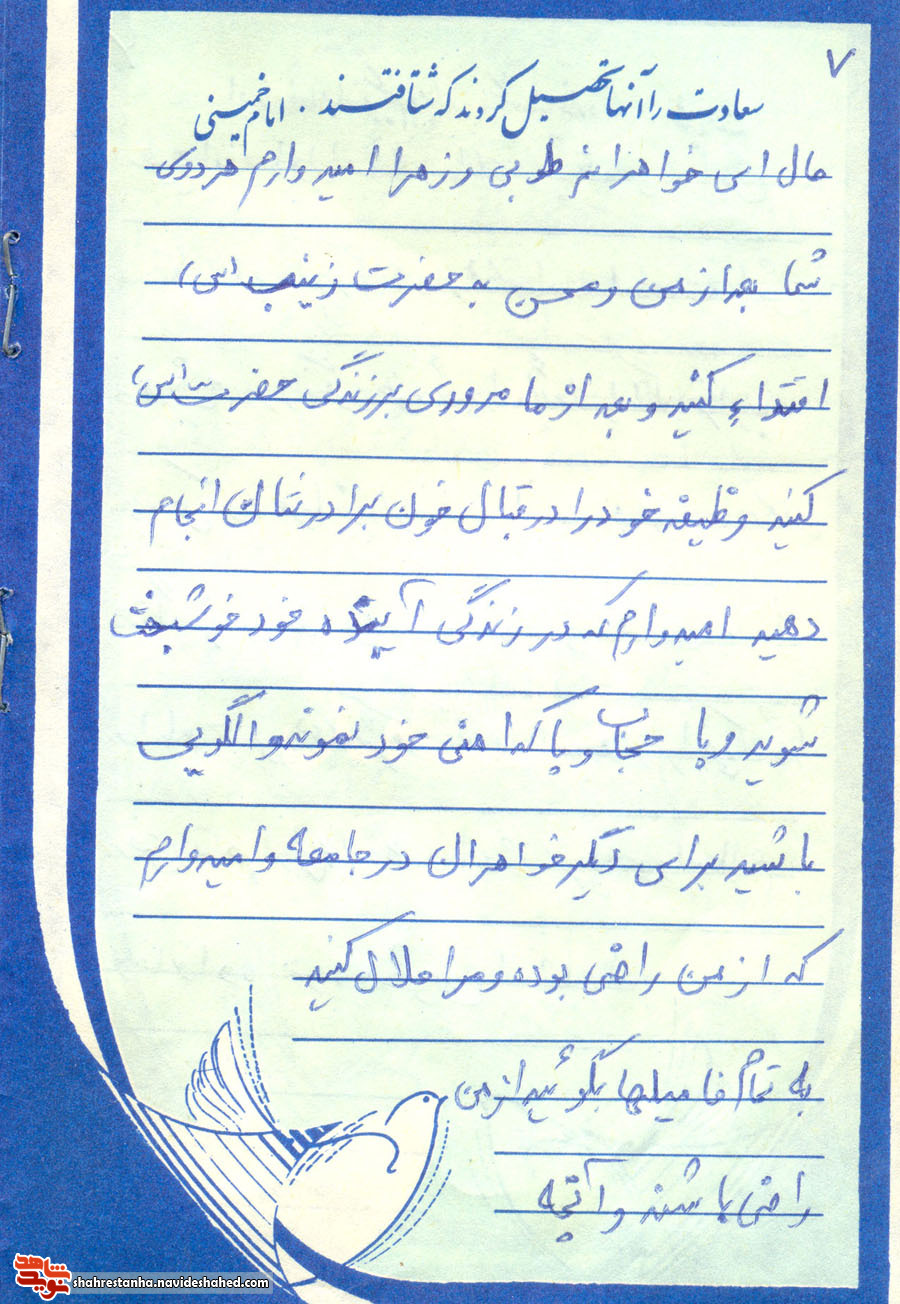 ۷
سعادت را آنها تحصیل کردند که شتافتند. امام خمینی
حال ای خواهرانم طوبی و زهرا امیدوارم هر دوی
شما بعد از من و محسن به حضرت زینب (س)
اقتداء کنید و بعد از ما مروری بر زندگی حضرت (س)
کنید وظیفه خود را در قبال خون برادرتان انجام
دهید امیدوارم که در زندگی آینده خود خوشبخت
شوید و با حجاب و پاکدامنی خود نمونه و الگویی
باشید برای دیگر خواهران در جامعه و امیدوارم
که از من راضی بوده و مرا حلال کنید
به تمام فامیلها بگوئید از من
راضی باشند و آنچه
نوید شاهد
shahrestanha.navideshahed.com